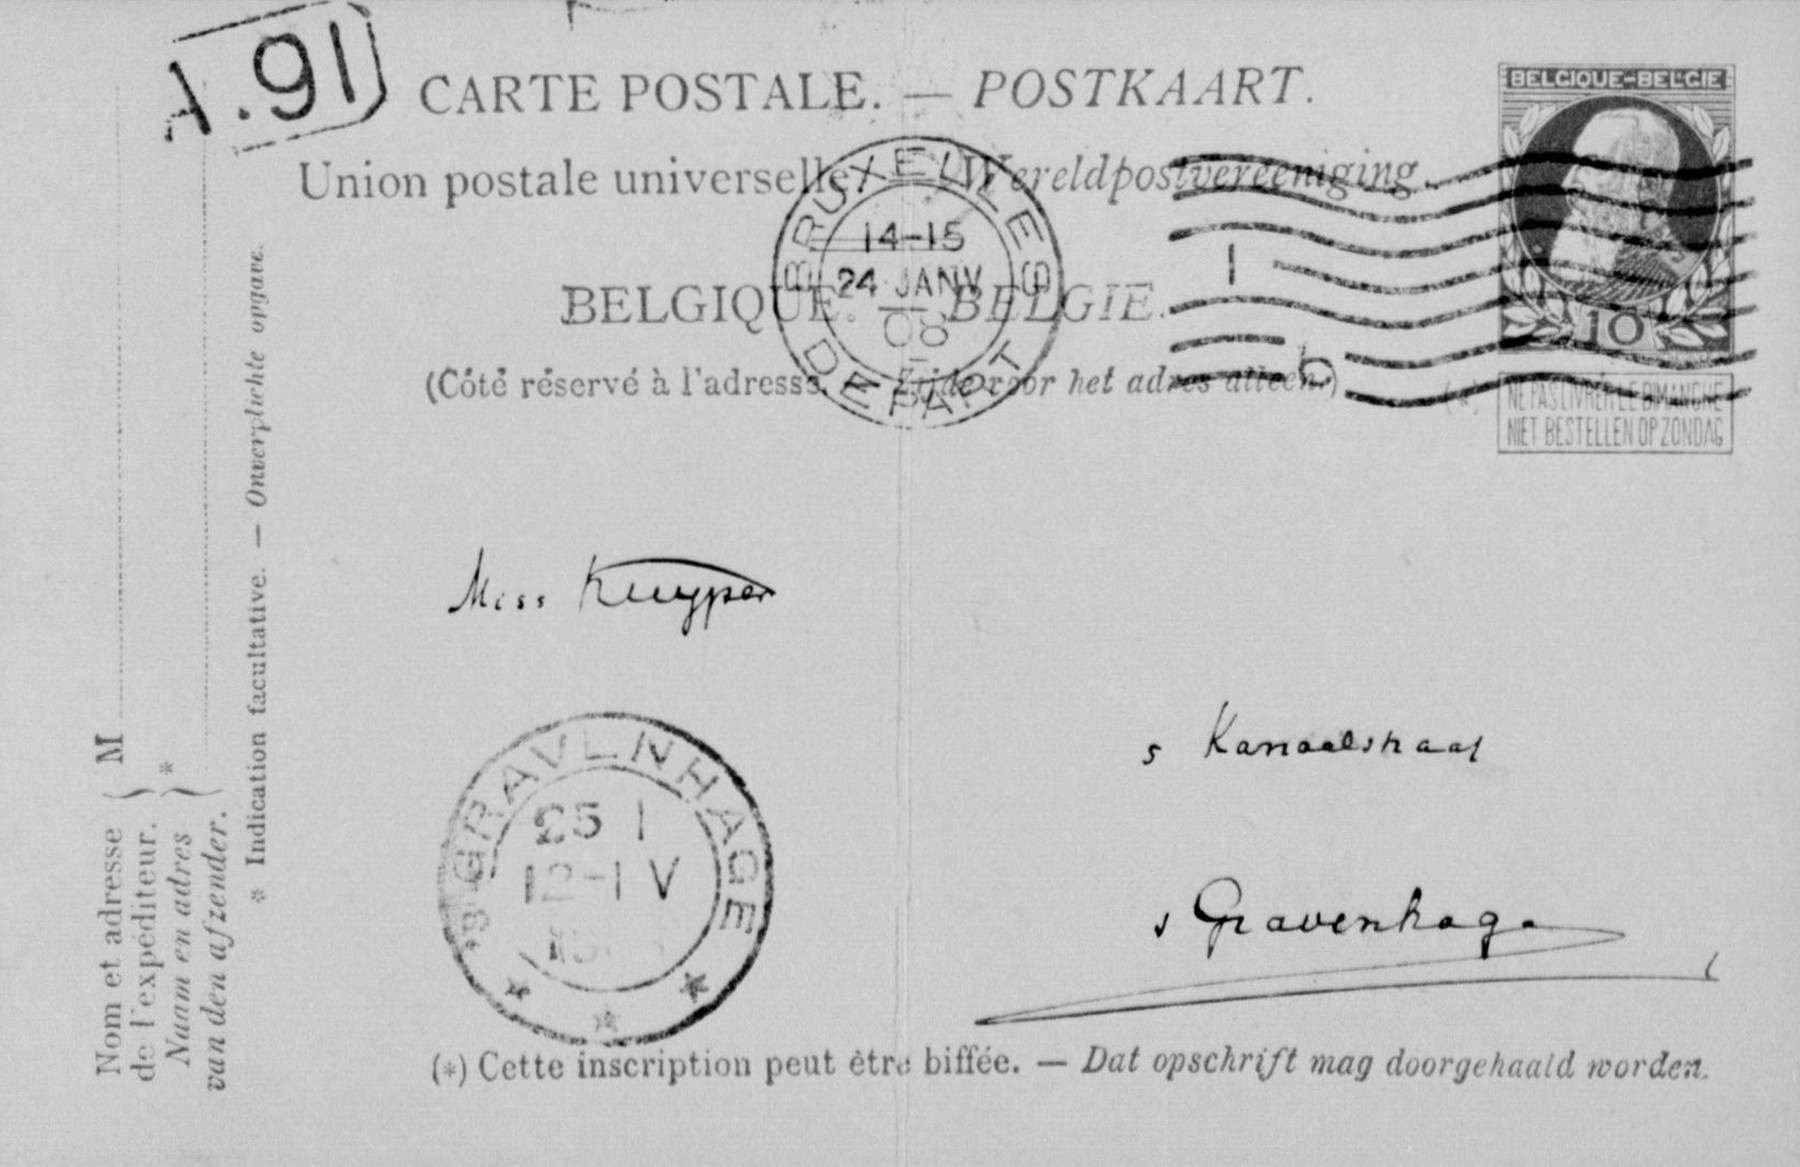 A.91
CARTE POSTALE. — POSTKAART.
BELGIQUE-BELGIE
Union postale universelle. Wereldpostvereeniging.
BRUXELLES
14-15
24 JANV
08
DEPART
1
BELGIQUE. — BELGIE.
10
(Côté réservé à l'adresse. Zijde voor het adres alleen.)
b
(*)
NE PAS LIVRER LE DIMANCHE
NIET BESTELLEN OP ZONDAG
Miss Kuyper
s Kanaalstraat
'S GRAVENHAGE
25 1
12-1 V
s Gravenhage
(*) Cette inscription peut être biffée. — Dat opschrift mag doorgehaald worden.
Nom et adresse
de l'expéditeur.
M
Naam en adres
van den afzender.
*
* Indication facultative. — Onverplichte opgave.